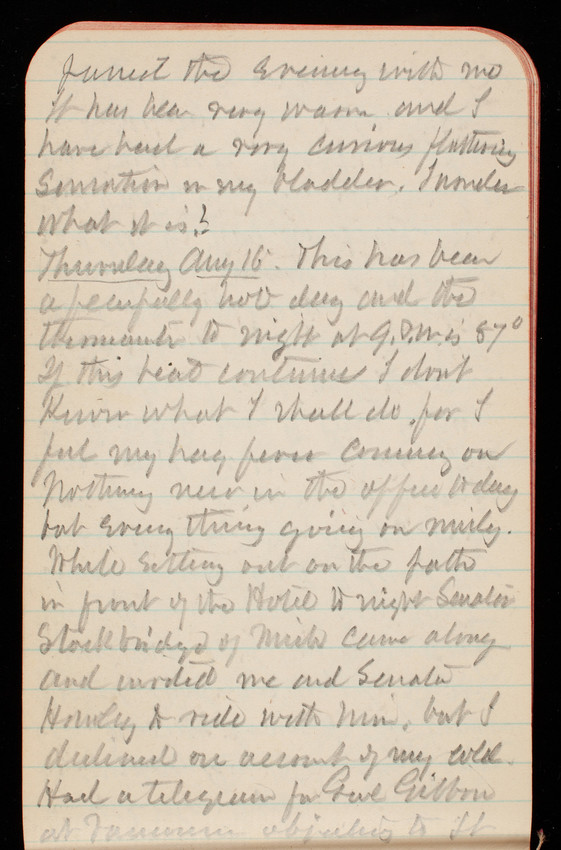 the evening with me
it has been very warm and I
have had a very curious fluttering
Sensation in my bladder. I wonder
what it is?
Thursday Aug 15. This has been
a fearfully hot day and the
thermometer to night at 9. P.M. is 87°
If this heat continues I dont
Know what I shall do, for I
feel my hay fever coming on
Nothing new in the office to day
but every thing going on nicely.
While sitting out on the path
in front of the Hotel to night Senator
Stockbridge of Mich came along
and invited me and Senator
Hawley to ride with him, but I
declined on account of my cold.
Had a telegram fm Genl Gibbon
at objecting to Lt